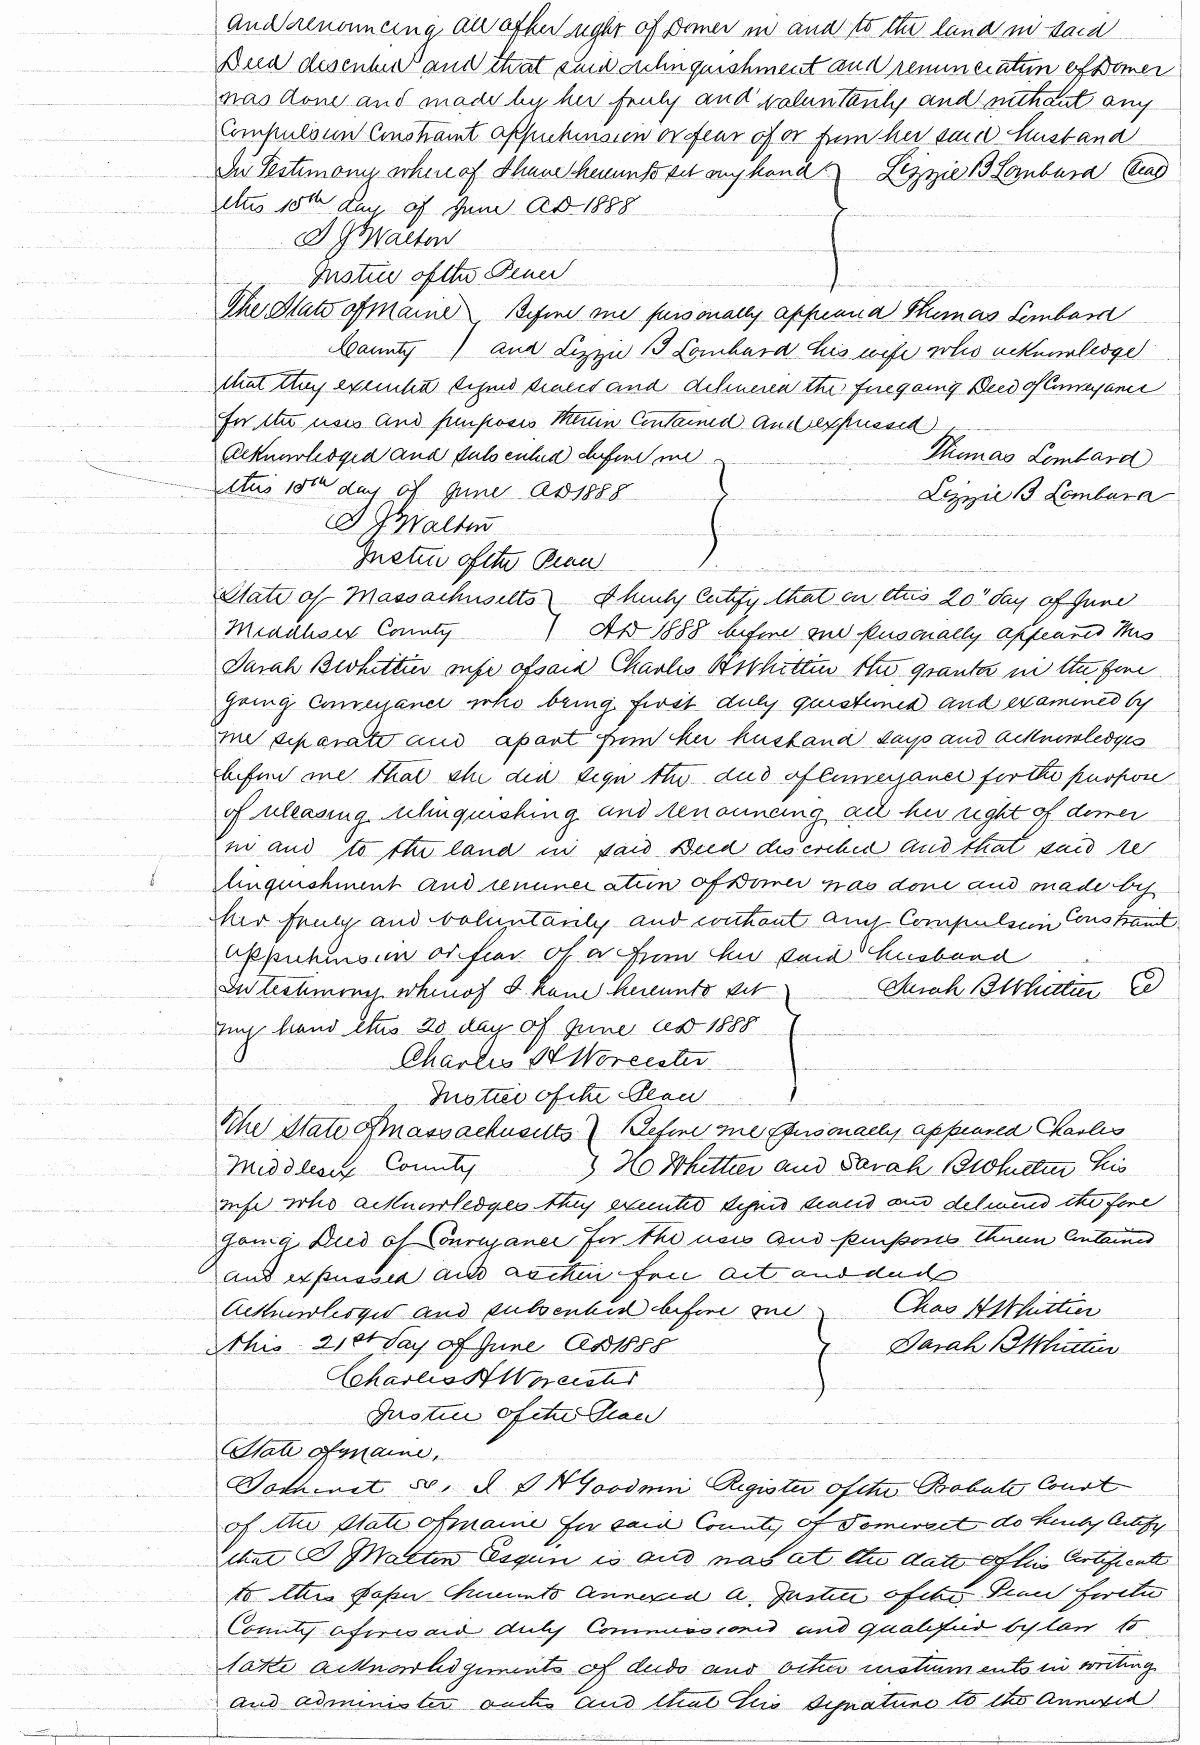 and renouncing all of her right of Dower in and to the land in said
Deed described and that said relinquishment and renunciation of Dower
was done and made by her freely and voluntarily and without any
Compulsion Constraint apprehension or fear of or from her said husband
In Testimony where of I have hereunto set my hand } Lizzie B Lombard (Seal)
this 15th day of June AD 1888
S J Walton
Justice of the Peace
The State of Maine } Before me personally appeared Thomas Lombard
County } and Lizzie B Lombard his wife who acknowledge
that they executed signed sealed and delivered the foregoing Deed of Conveyance
for the uses and purposes therein Contained and expressed
Acknowledged and subscribed before me } Thomas Lombard
this 15th day of June AD 1888 Lizzie B Lombard
S J Walton
Justice of the Peace
State of Massachusetts } I hereby Certify that on this 20" day of June
Middlesex County } AD 1888 before me personally appeared Mrs
Sarah B Whittier wife of said Charles H Whittier the grantor in the fore
going Conveyance who being first duly questioned and examined by
me separate and apart from her husband says and acknowledges
before me that she did sign the deed of Conveyance for the purpose
of releasing relinquishing and renouncing all her right of dower
in and to the land in said Deed described and that said re
linquishment and renunciation of Dower was done and made by
her freely and voluntarily and without any Compulsion Constraint
apprehension or fear of or from her said husband
In testimony whereof I have hereunto set } Sarah B Whittier
my hand this 20 day of June AD 1888
Charles H Worcester
Justice of the Peace
The State of Massachusetts } Before me personally appeared Charles
Middlesex County } H Whittier and Sarah B Whittier his
wife who acknowledges they executed signed sealed and delivered the fore
going Deed of Conveyance for the uses and purposes therein Contained
and expressed and as their free act and deed
Acknowledged and subscribed before me } Chas H Whittier
this 21st day of June AD 1888 Sarah B Whittier
Charles H Worcester
Justice of the Peace
State of Maine.
Somerset ss. I S H Goodwin Register of the Probate Court
of the State of Maine for said County of Somerset do hereby Certify
that S J Walton Esquire is and was at the date of his Certificate
to this paper hereunto annexed a Justice of the Peace for the
County aforesaid duly Commissioned and qualified by law to
take acknowledgements of deeds and other instruments in writing
and administer oaths and that his signature to the annexed